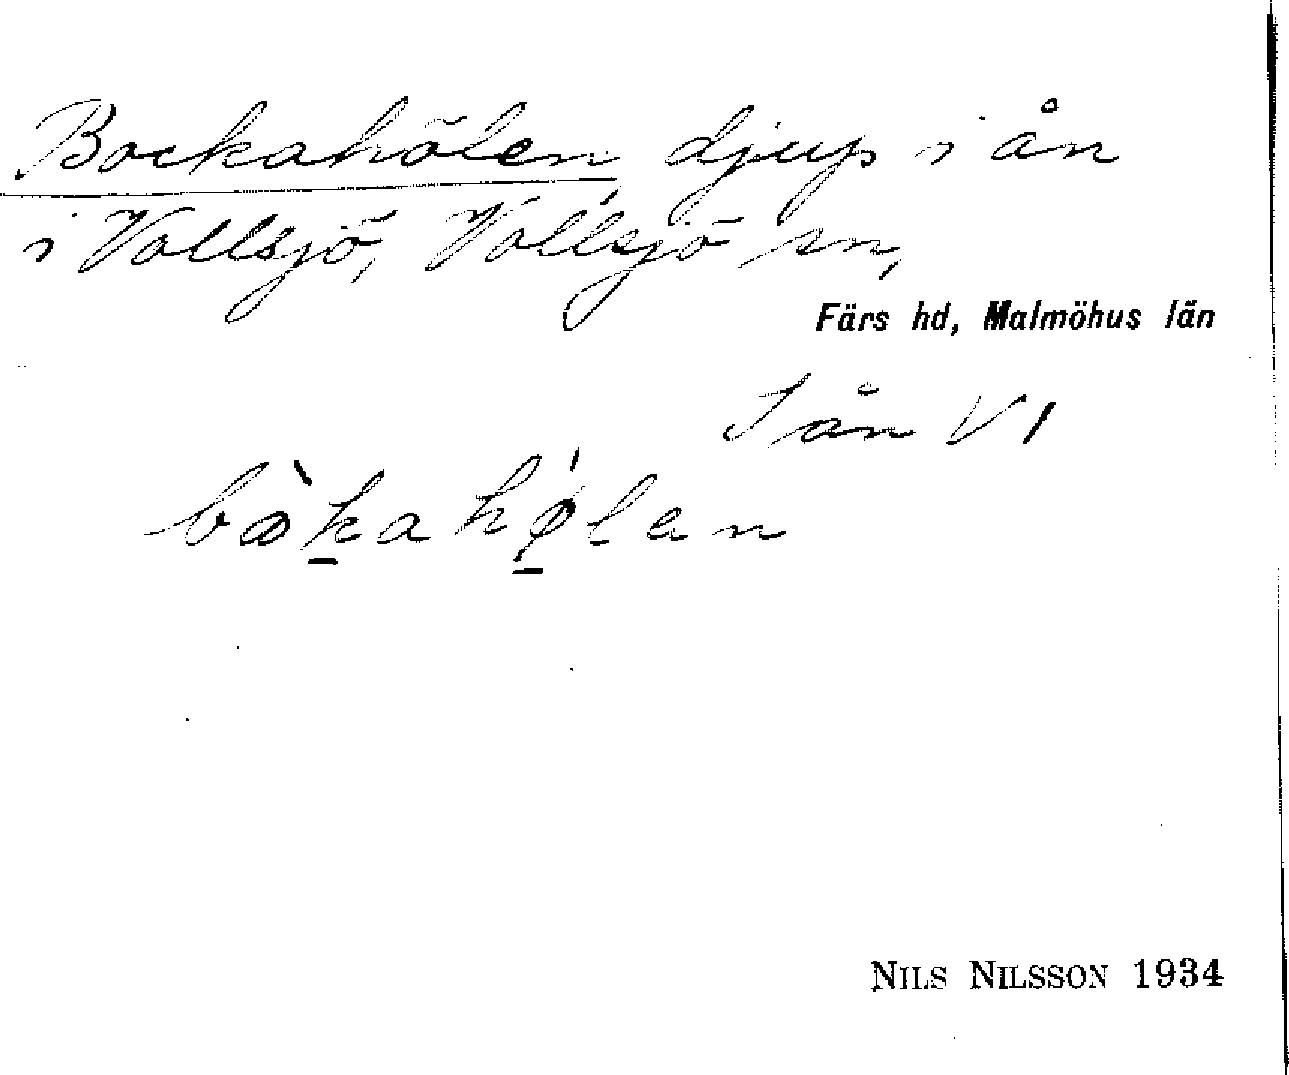 Bockahölen, djup i ån
i Vollsjö, Vollsjö sn,
Färs hd, Malmöhus län
I ån VI
bòkahǿlen
NILS NILSSON 1934